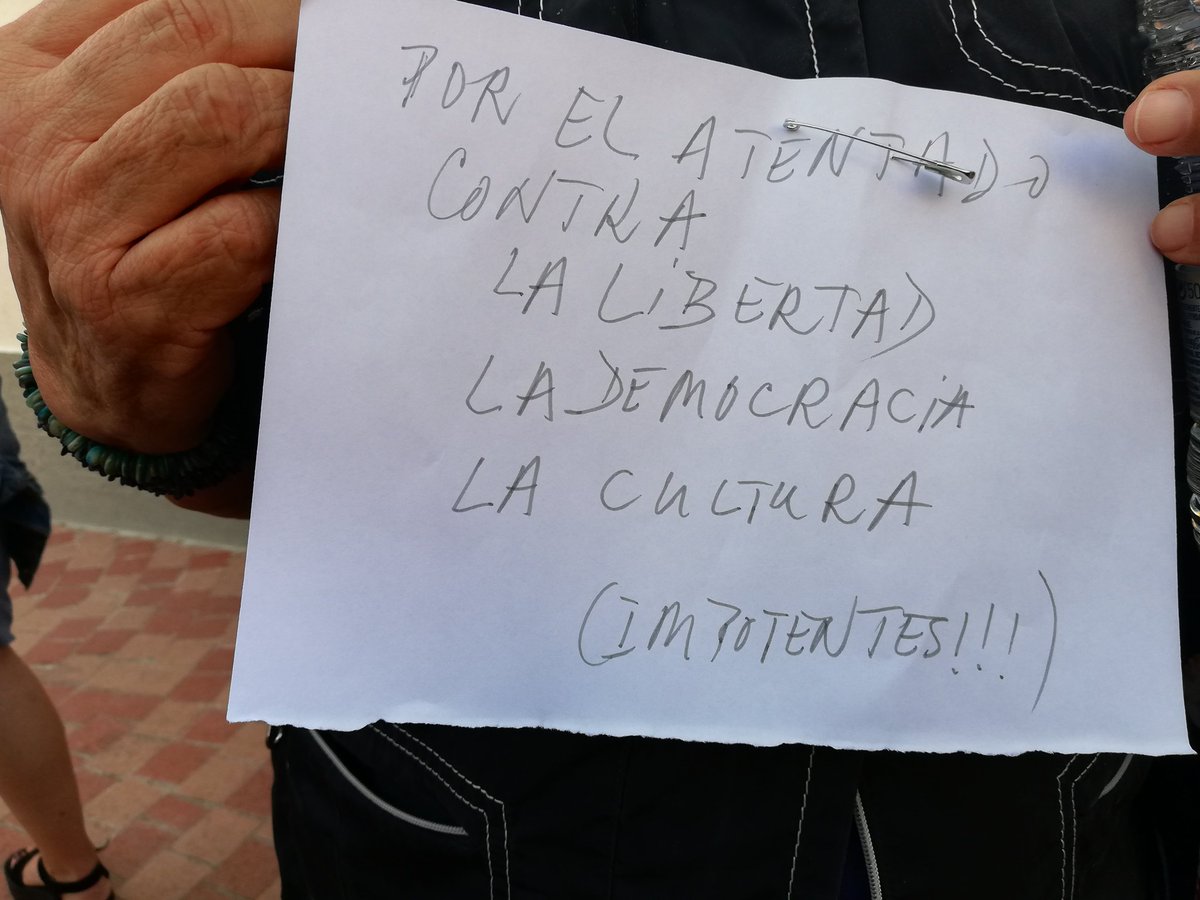 POR EL ATENTADO
CONTRA
LA LiBERTAD
LA DEMOCRACiA
LA CULTURA
(IMPOTENTES!!!)